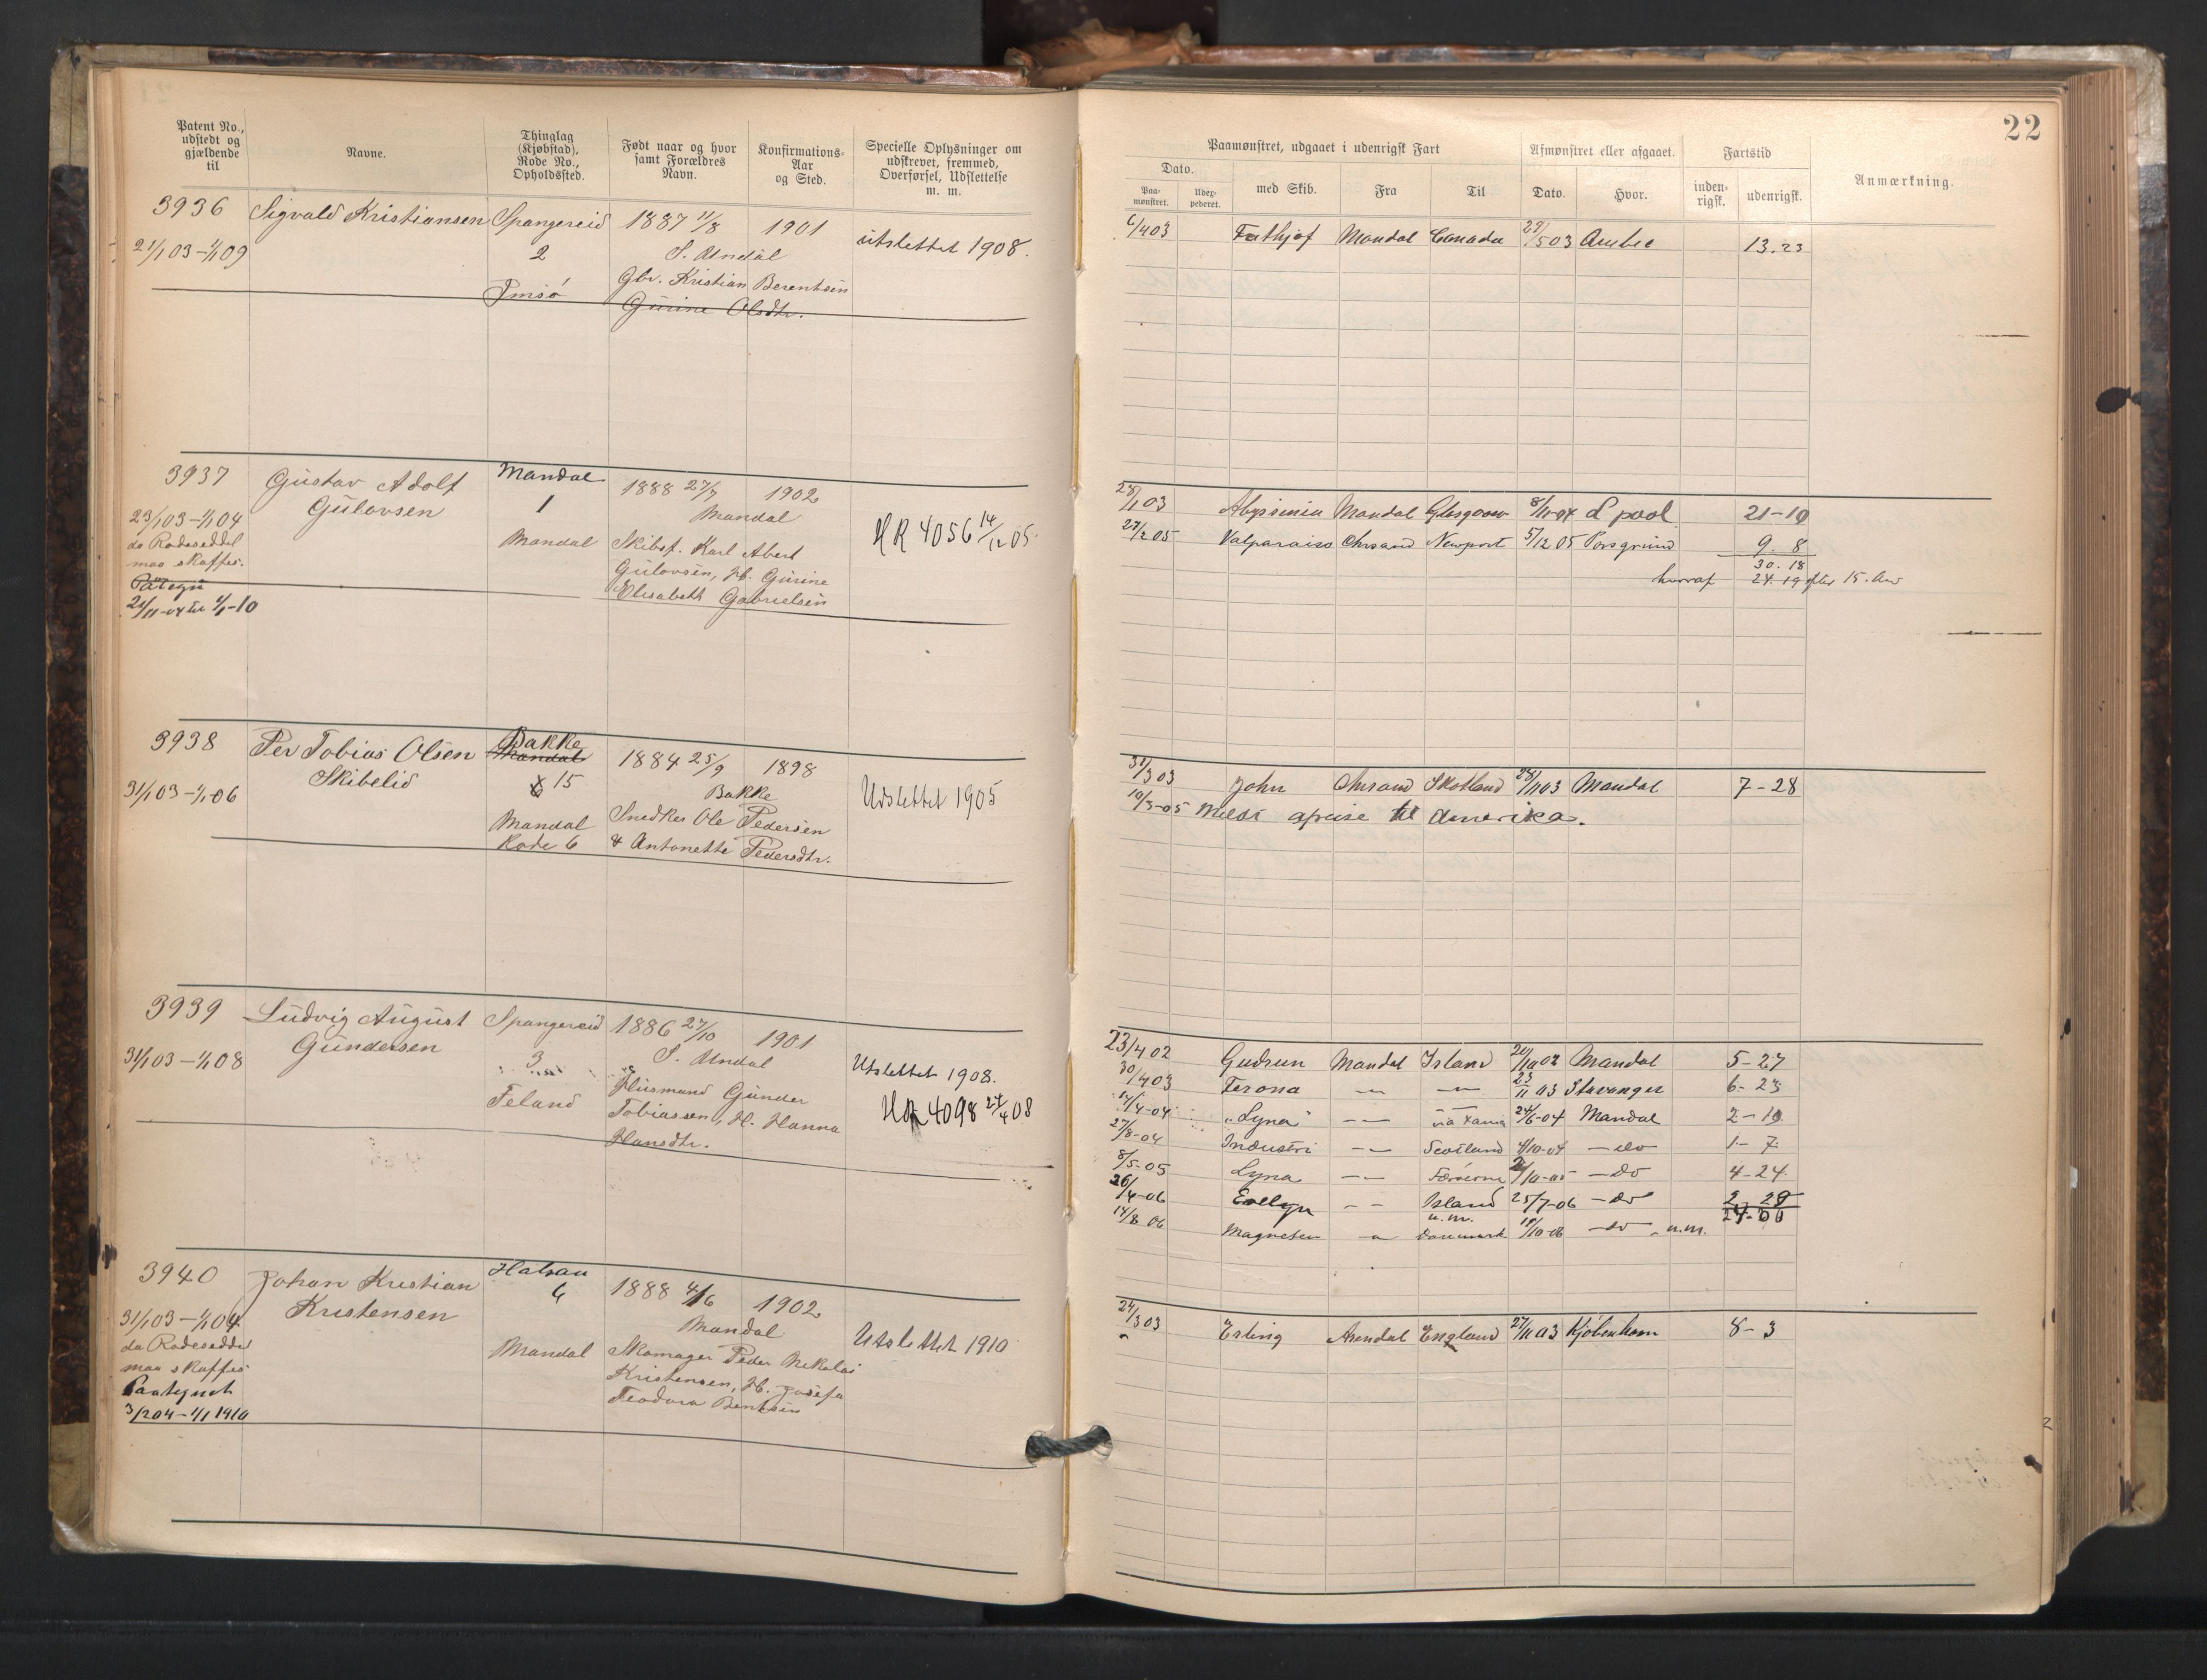 22
Patent No., udstedt og gjældende til
Navne.
Thinglag (Kjøbstad), Rode No., Opholdssted.
Født naar og hvor samt Forældres Navn.
Konfirmations-Aar og Sted.
Specielle Oplysninger om udskrevet, fremmed, Overførsel, Udslettelse m. m.
Paamønstret, udgaaet i udenrigsk Fart
Dato.
Paa-mønstret.
med Skib.
Fra
Til
Afmønstret eller afgaaet.
Dato.
Hvor.
Fartstid
inden-rigsk.
udenrigsk.
Anmærkning.
3936 Sigvald Kristiansen Spangereid 1887 11/8 1901
21/1 03 - 1/1 09 2 S. Undal utslettet 1908.
Gbr. Kristian Berentsen
Gurine Olsdtr.
6/4 03 Mandal Canada 29/5 03 13.23
3937 Gustav Adolf Mandal 1888 27/7 1902
Gulovsen 1 Mandal
23/1 03 - 1/1 04 HR 4056 14/12 05.
da Rodeseddel Mandal Skibsf. Karl Abert
maa skaffes. Gulovsen, H. Gurine
Elisabeth Gabrielsen
21/11-04 til 1/1-10
28/1 03 Abyssinia Mandal Glasgow 8/11-04 L pool 21-10
27/2 05 Valparaiso Chrsand Newport 5/12 05 Porsgrund 9. 8
30. 18
hvoraf 24. 19 efter 15. Aar
3938 Per Tobias Olsen Bakke
Mandal 1884 25/9 1898
Skibelid 15 Bakke
31/1 03 - 1/1 06 Udslettet 1905
Mandal Snedker Ole Pedersen
Rode 6 & Antonette Pedersdtr.
31/3 03 John Chrsand Skotland 28/11 03 Mandal 7-28
10/3-05 Meldt afreise til Amerika.
3939 Ludvig August Spangereid 1886 27/10 1901
Gundersen 3 S. Undal
31/1 03 - 1/1 08 Utslettet 1908.
Husmand Gunder
Feland Tobiassen, H. Hanna HR 4098 24/4 08
Hansdtr.
23/4 02 Gudrun Mandal Island 20/10 02 Mandal 5-27
30/4 03 Ferona — — 23/11 03 Stavanger 6-23
14/4-04 "Lyna" — 24/6-04 Mandal 2-10
27/8-04 Industri — Scotland 4/10-04 — do 1-7
8/5-05 Lyna — Færøerne 2/10-05 — do 4-24
26/4-06 Evelyn — Island 25/7-06 — do 2 29
u.m. 24-00
14/8 06 Magnesen — Danmark 18/10-06 — do — u.m.
3940 Johan Kristian Halsaa 1888 4/6 1902
Kristensen 4 Mandal
31/1 03 - 1/1 04 Utslettet 1910
da Rodeseddel Mandal Skomager Peder Nikolai
maa skaffes Kristensen, H. Josefa
Paategnet Teodora Bentsen
3/2 04 - 1/1 1910
24/3 03 Erling Arendal England 27/11 03 Kjøbenhavn 8-3